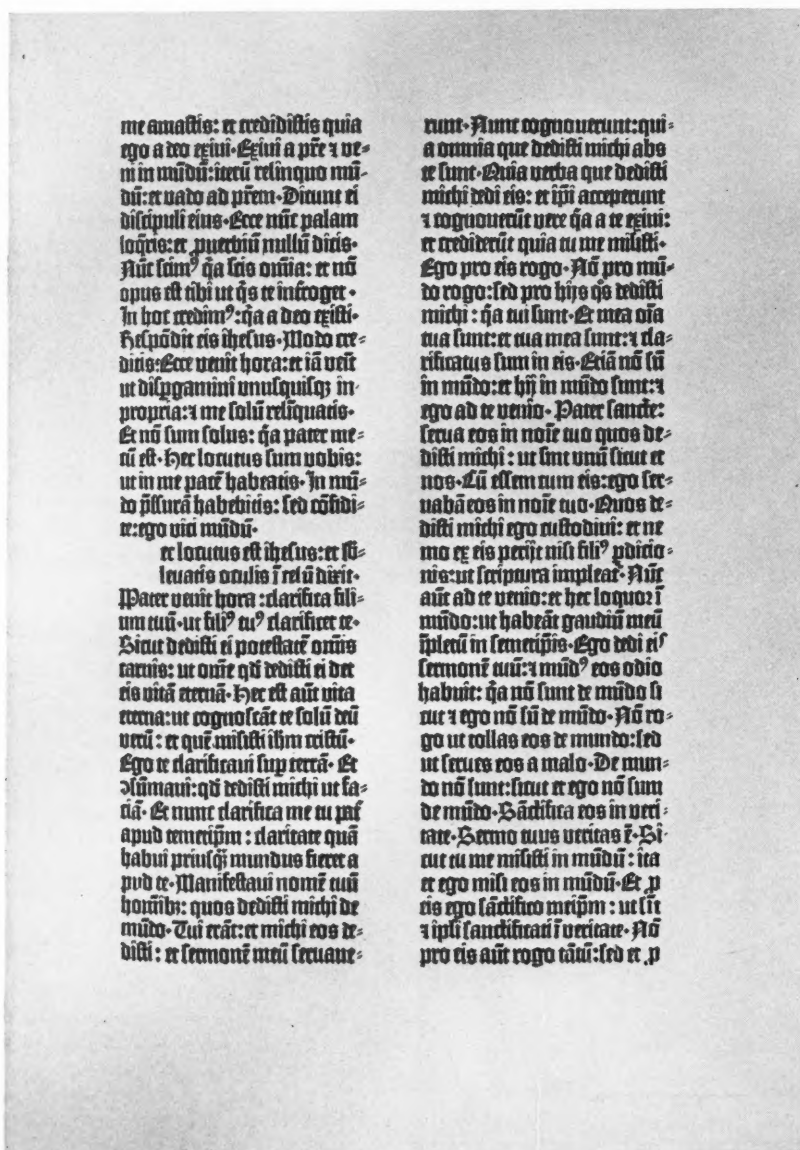 me amastis: et credidistis quia
ego a deo exiui·Exiui a pr̄e ⁊ ve-
ni in mūdū: iterū relinquo mū-
dū: et vado ad pr̄em·Dicunt ei
discipuli eius·Ecce nūc palam
loq̄ris: et ꝓuerbiū nullū dicis·
Nūc scim⁹ q̄a scis om̄ia: et nō
opus est tibi ut q̄s te int̄roget·
In hoc credim⁹: q̄a a deo existi·
Respōdit eis ihesus·Modo cre-
ditis: Ecce uenit hora: et iā ueīt
ut disꝑgamini unusquisqꝫ in
propria: ⁊ me solū relīquatis·
Et nō sum solus: q̄a pater me-
cū est·Hec locutus sum uobis:
ut in me pacē habeatis·In mū-
do p̄ssurā habebitis: sed cōfidi-
te: ego vici mūdū·
et locutus est ihesus: et sb̄-
leuatis oculis ī celū dixit·
Pater uenit hora: clarifica fili-
um tuū·ut fili⁹ tu⁹ clarificet te·
Sicut dedisti ei potestatē om̄is
carnis: ut om̄e qd̄ dedisti ei det
eis uitā eternā·Hec est aūt uita
eterna: ut cognoscāt te solū deū
uerū: et quē misisti ih̄m cristū·
Ego te clarificaui suꝑ terrā·Et
ꝯsūmaui: qd̄ dedisti michi ut fa-
ciā·Et nunc clarifica me tu pat̄
apud temetip̄m: claritate quā
habui priusq̄ꝫ mundus fieret a
pud te·Manifestaui nomē tuū
homībꝫ: quos dedisti michi de
mūdo·Tui erāt: et michi eos de-
disti: et sermonē meū seruaue-
runt·Nunc cognouerunt: qui-
a omnia que dedisti michi abs
te sunt·Quia verba que dedisti
michi dedi eis: et ip̄i acceperunt
⁊ cognouerūt vere q̄a a te exiui:
et crediderūt quia tu me misisti·
Ego pro eis rogo·Nō pro mū-
do rogo: sed pro hijs q̄s dedisti
michi: q̄a tui sunt·Et mea oīa
tua sunt: et tua mea sunt: ⁊ cla-
rificatus sum in eis·Etiā nō sū
in mūdo: et hij in mūdo sunt: ⁊
ego ad te venio·Pater sancte:
serua eos in noīe tuo quos de-
disti michi: ut sint unū sicut et
nos·Cū essem cum eis: ego ser-
uabā eos in noīe tuo·Quos de-
disti michi ego custodiui: et ne
mo ex eis perijt nisi fili⁹ ꝑdicio-
nis: ut scriptura impleat̄·Nūc
aūt ad te venio: et hec loquor ī
mūdo: ut habeāt gaudiū meū
īpletū in semetip̄is·Ego dedi eis
sermonē tuū: ⁊ mūd⁹ eos odio
habuit: q̄a nō sunt de mūdo si
cut ⁊ ego nō sū de mūdo·Nō ro-
go ut tollas eos de mundo: sed
ut serues eos a malo·De mun-
do nō sunt: sicut et ego nō sum
de mūdo·Sāctifica eos in veri-
tate·Sermo tuus veritas ē·Si-
cut tu me misisti in mūdū: ita
et ego misi eos in mūdū·Et ꝓ
eis ego sāctifico meip̄m: ut sīt
⁊ ipsi sanctificati ī veritate·Nō
pro eis aūt rogo tātū: sed et ꝓ